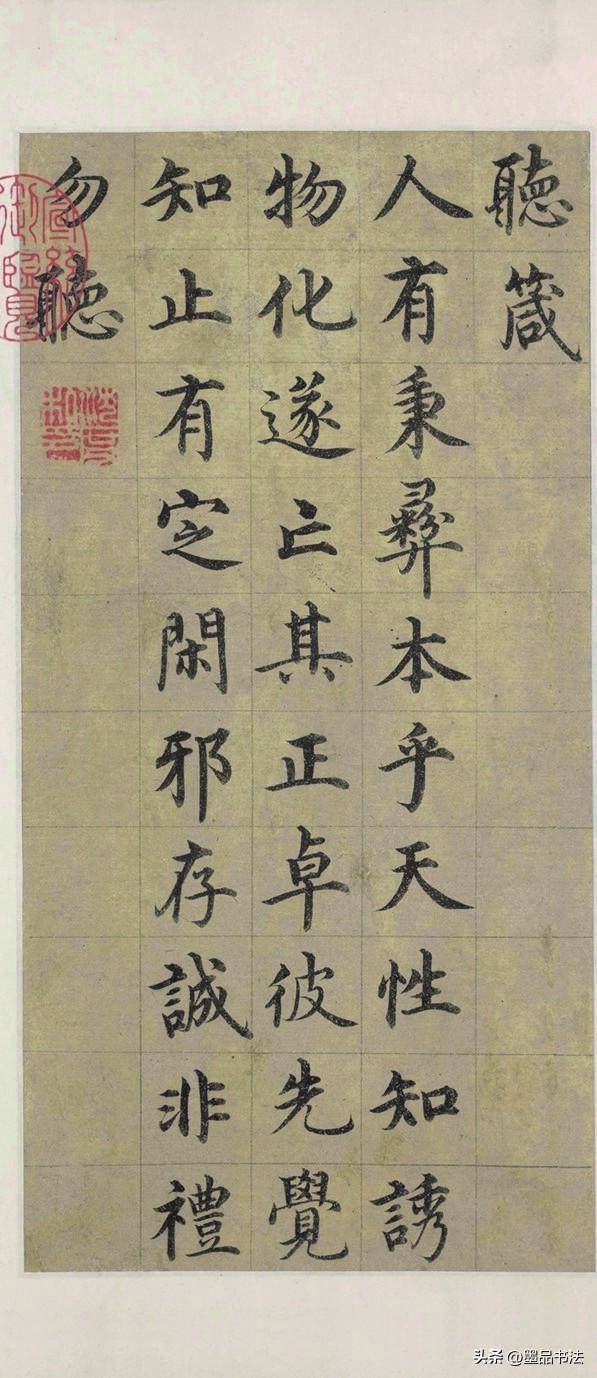 聽箴
人有秉彝本乎天性知誘
物化遂亡其正卓彼先覺
知止有定閑邪存誠非禮
勿聽
头条 @墨品书法